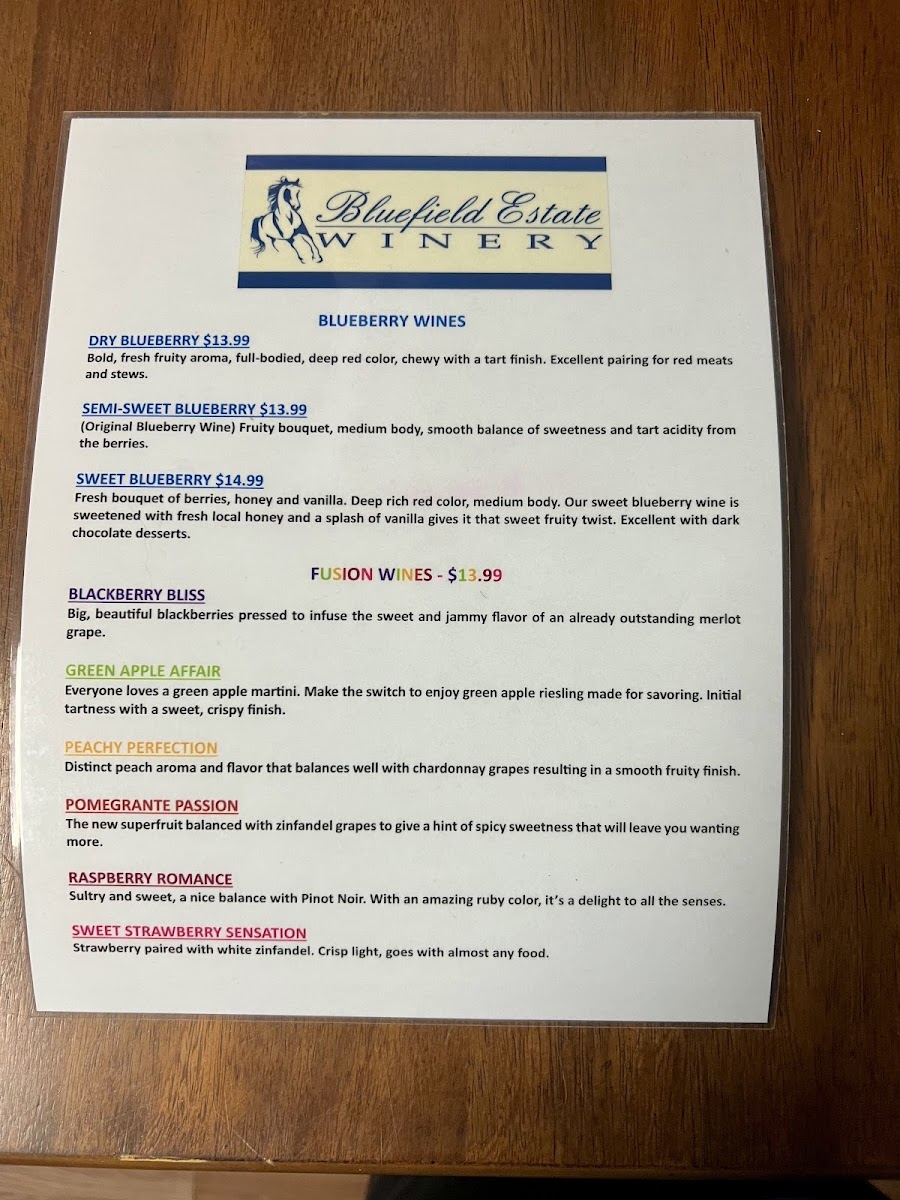 Bluefield Estate
WINERY
BLUEBERRY WINES
DRY BLUEBERRY $13.99
Bold, fresh fruity aroma, full-bodied, deep red color, chewy with a tart finish. Excellent pairing for red meats
and stews.
SEMI-SWEET BLUEBERRY $13.99
(Original Blueberry Wine) Fruity bouquet, medium body, smooth balance of sweetness and tart acidity from
the berries.
SWEET BLUEBERRY $14.99
Fresh bouquet of berries, honey and vanilla. Deep rich red color, medium body. Our sweet blueberry wine is
sweetened with fresh local honey and a splash of vanilla gives it that sweet fruity twist. Excellent with dark
chocolate desserts.
FUSION WINES - $13.99
BLACKBERRY BLISS
Big, beautiful blackberries pressed to infuse the sweet and jammy flavor of an already outstanding merlot
grape.
GREEN APPLE AFFAIR
Everyone loves a green apple martini. Make the switch to enjoy green apple riesling made for savoring. Initial
tartness with a sweet, crispy finish.
PEACHY PERFECTION
Distinct peach aroma and flavor that balances well with chardonnay grapes resulting in a smooth fruity finish.
POMEGRANTE PASSION
The new superfruit balanced with zinfandel grapes to give a hint of spicy sweetness that will leave you wanting
more.
RASPBERRY ROMANCE
Sultry and sweet, a nice balance with Pinot Noir. With an amazing ruby color, it's a delight to all the senses.
SWEET STRAWBERRY SENSATION
Strawberry paired with white zinfandel. Crisp light, goes with almost any food.